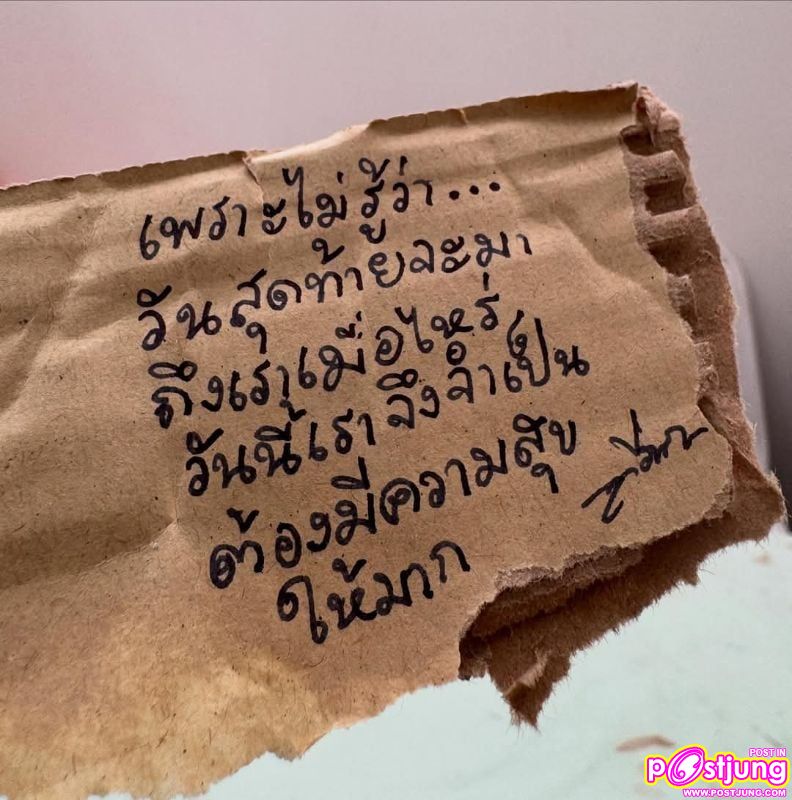 เพราะไม่รู้ว่า...
วันสุดท้ายจะมา
ถึงเราเมื่อไหร่
วันนี้เราจึงจำเป็น
ต้องมีความสุข
ให้มาก
POST IN
Postjung
WWW.POSTJUNG.COM